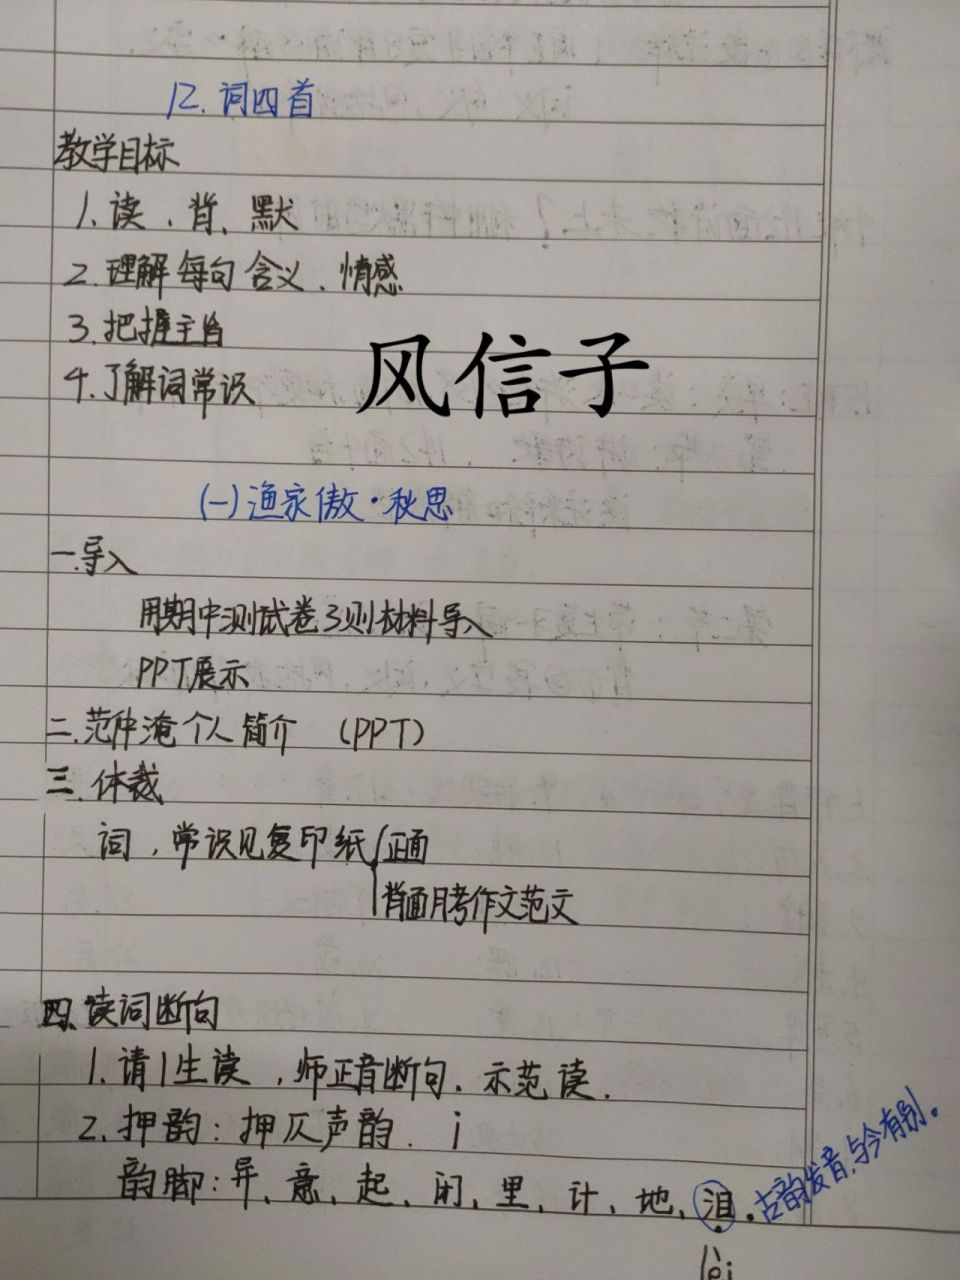 12. 词四首
教学目标
1. 读、背、默
2. 理解每句含义、情感
3. 把握主旨
4. 了解词常识
风信子
(一) 渔家傲·秋思
一. 导入
用期中测试卷3则材料导入
PPT展示
二. 范仲淹个人简介 (PPT)
三. 体裁
词，常识见复印纸 正面
背面月考作文范文
四、读词断句
1. 请1生读，师正音断句、示范读.
2. 押韵：押仄声韵. i
韵脚：异、意、起、闭、里、计、地、泪.
古韵发音，与今有别。
lèi